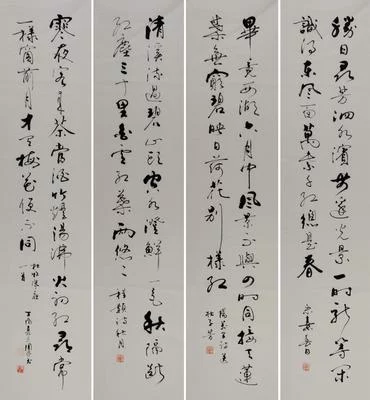 勝日尋芳泗水濱無邊光景一時新等閑
識得東風面萬紫千紅總是春
朱熹春日
畢竟西湖六月中風景不與四時同接天蓮
葉無窮碧映日荷花別樣紅
楊萬里詩送
林子方
清溪流過碧山頭空水澄鮮一色秋隔斷
紅塵三十里白雲紅葉兩悠々
程顥詩秋月
寒夜客來茶當酒竹爐湯沸火初紅尋常
一樣窗前月才有梅花便不同
杜耒寒夜
一首
丁酉